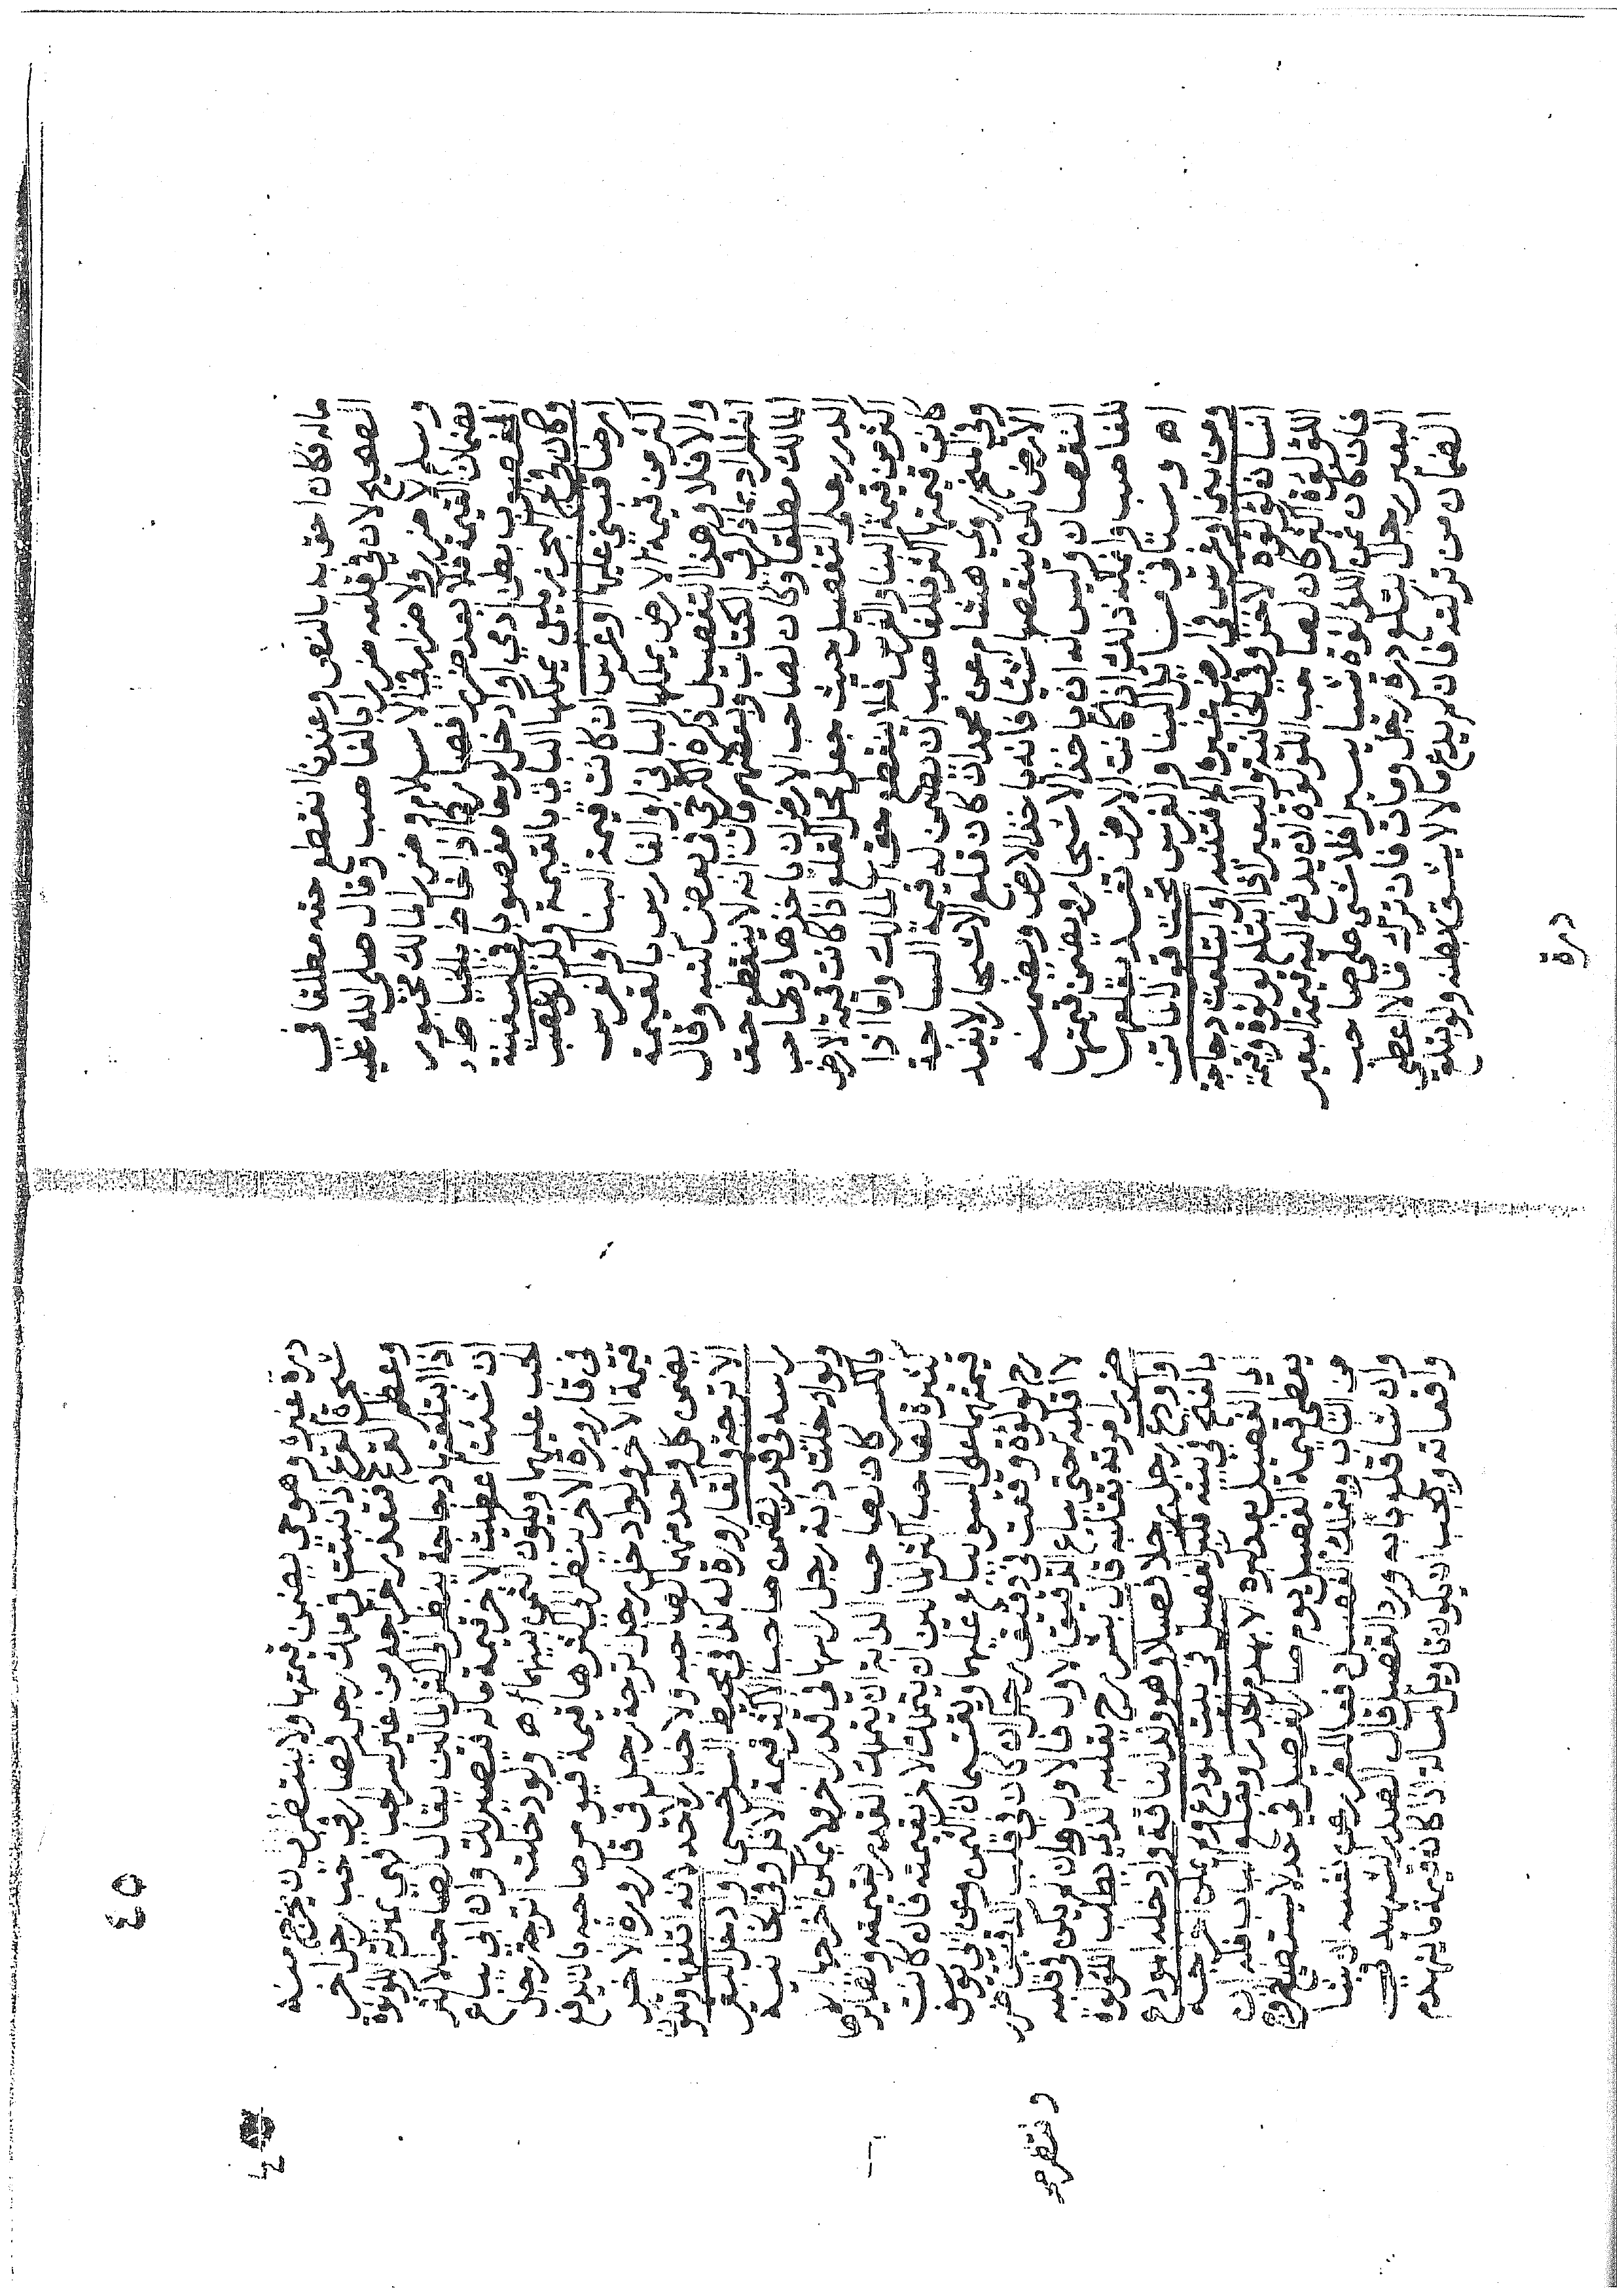 ماله فكان احق به بالنص وعندنا انقطع حقه مطلقا في
الصحيح لان في قلعه ضررا بالغاصب وقال صلى الله عليه
وسلم لا ضرر ولا ضرار في الاسلام وضرر المالك مجبور
بضمان القيمة فلا يعد ضررا فصار كما اذا خاط بالخيط
المغصوب بطن ادمي او ادخل لوحا مغصوبا في سفينة
وكان في لجج البحر يملكها الباني بالقيمة ولو غصب
ارضا فبنى عليها او غرس ان كانت قيمة البنا والغرس
اكثر من قيمة الارض يملكها الباني او الغارس بالقيمة
والا فلا وهذا التفصيل ذكره الكرخي في بعض كتبه وقال
انه المراد بما ذكر في الكتاب وبعضهم قال انه لا ينقطع حق
المالك مطلقا وكان لصاحب الارض ان ياخذها وصاحب
الدرر حمل التفصيل حيث جعل محل القلع اذا كانت قيمة الارض
اكثر من قيمة البنا والغرس فلا ينقطع حق المالك واما اذا
كانت قيمتها اكثر فللغاصب ان يضمن له قيمة الساحة
وفي المنح روي هشام عن محمد ان كان قلع الاشجار لا يفسد
الارض لكن ينقصها شيئا فانه ياخذ الارض ويضمنه
النقصان وليس له ان ياخذ الاشجار ويضمن قيمتها
للغاصب وانما له ذلك اذا كانت الارض تفسد بقلعها
اه وستاتي مسائل البنا والغرس تحت قول الماتن
ومن بنى او غرس في ارض غيره الخ فتنبه او ابتلعت دجاجة
انسان لؤلؤة لاخر وفي الخانية والبعير اذا ابتلع لؤلؤة وقيمة
اللؤلؤة اكثر كان لصاحب اللؤلؤة ان يدفع اليه قيمة البعير
فان كان ثمن اللؤلؤة شيا يسيرا فلا شي على صاحب
البعير رجل ابتلع درة رجل ومات فان ترك مالا اعطى
الضمان من تركته فان لم يدع مالا لا يشق بطنه ولو ابتلع
درة
٤٥
درة غيره وهو حي يضمن قيمتها ولا ينتظر ان يخرج منه
شجرة القرع اذا نبتت في ملك رجل فصار في حب رجل اخر
وعظم القرع فتعذر اخراجه من غير كسر الحب فهي بمنزلة اللؤلؤة
اذا ابتلعتها دجاجة ينظر الى اكثر المالين يقال لصاحب الاكثر
ان شئت اعطيت الاخر قيمة ماله فتصير لك وان ابى يباع
الحب عليهما ويكون الثمن بينهما اه ولو دخلت اترجة رجل
في قارورة الاخر ينظر الى اكثرهما قيمة فيؤمر صاحبه بان يدفع
قيمة الاخر ولو ادخل رجل اترجة رجل في قارورة الاخر
يضمن كل واحد منهما لصاحبه ولا خيار لاحد لانه اتلفها ويكون
الاترجة والقارورة له كذا في محيط السرخسي او ادخل البقر
راسه في قدر يضمن صاحب الاكثر قيمة الاقل وفي الخانية
ولو ادخلت دابة رجل راسها في قدر اخر ولا يمكن اخراجها الا
بالكسر كان لصاحب الدابة ان يتملك القدر بقيمته ونظايرها
كثيرة لصاحب اكثر المالين ان يتملك الاخر بقيمته فان كانت
قيمتهما على السوا يباع عليهما ويقتسمان الثمن وعن ابي يوسف
رح لؤلؤة وقعت في دقيق رجل ان كان في قلب الدقيق ضرر
لا اقلبه حتى يباع الدقيق الاول فالاول وان لم يكن في قلبه
ضرر امرته بقلبه قال بشر رح يقلبه الذي يطلب اللؤلؤة
او اودع رجل رجلا فصيلا وهو ولد الناقة وادخله المودع
بالفتح في بيته فكبر الفصيل في بيت المودع ولم يمكن اخراجه
اي الفصيل بعد كبره الا بهدم الجدار وقلع الباب فله ان
يعطي قيمة الفصيل يوم صار الفصيل في حد لا يستطيع الخروج
من الباب ويتملك الفصيل دفعا للضرر عن نفسه ان شا
وان شا قلع بابه ورد الفصيل قال الصدر الشهيد في
واقعاته ويجب ان يكون تاويل المسالة اذا كان قيمة ما ينهدم
وننظر مح